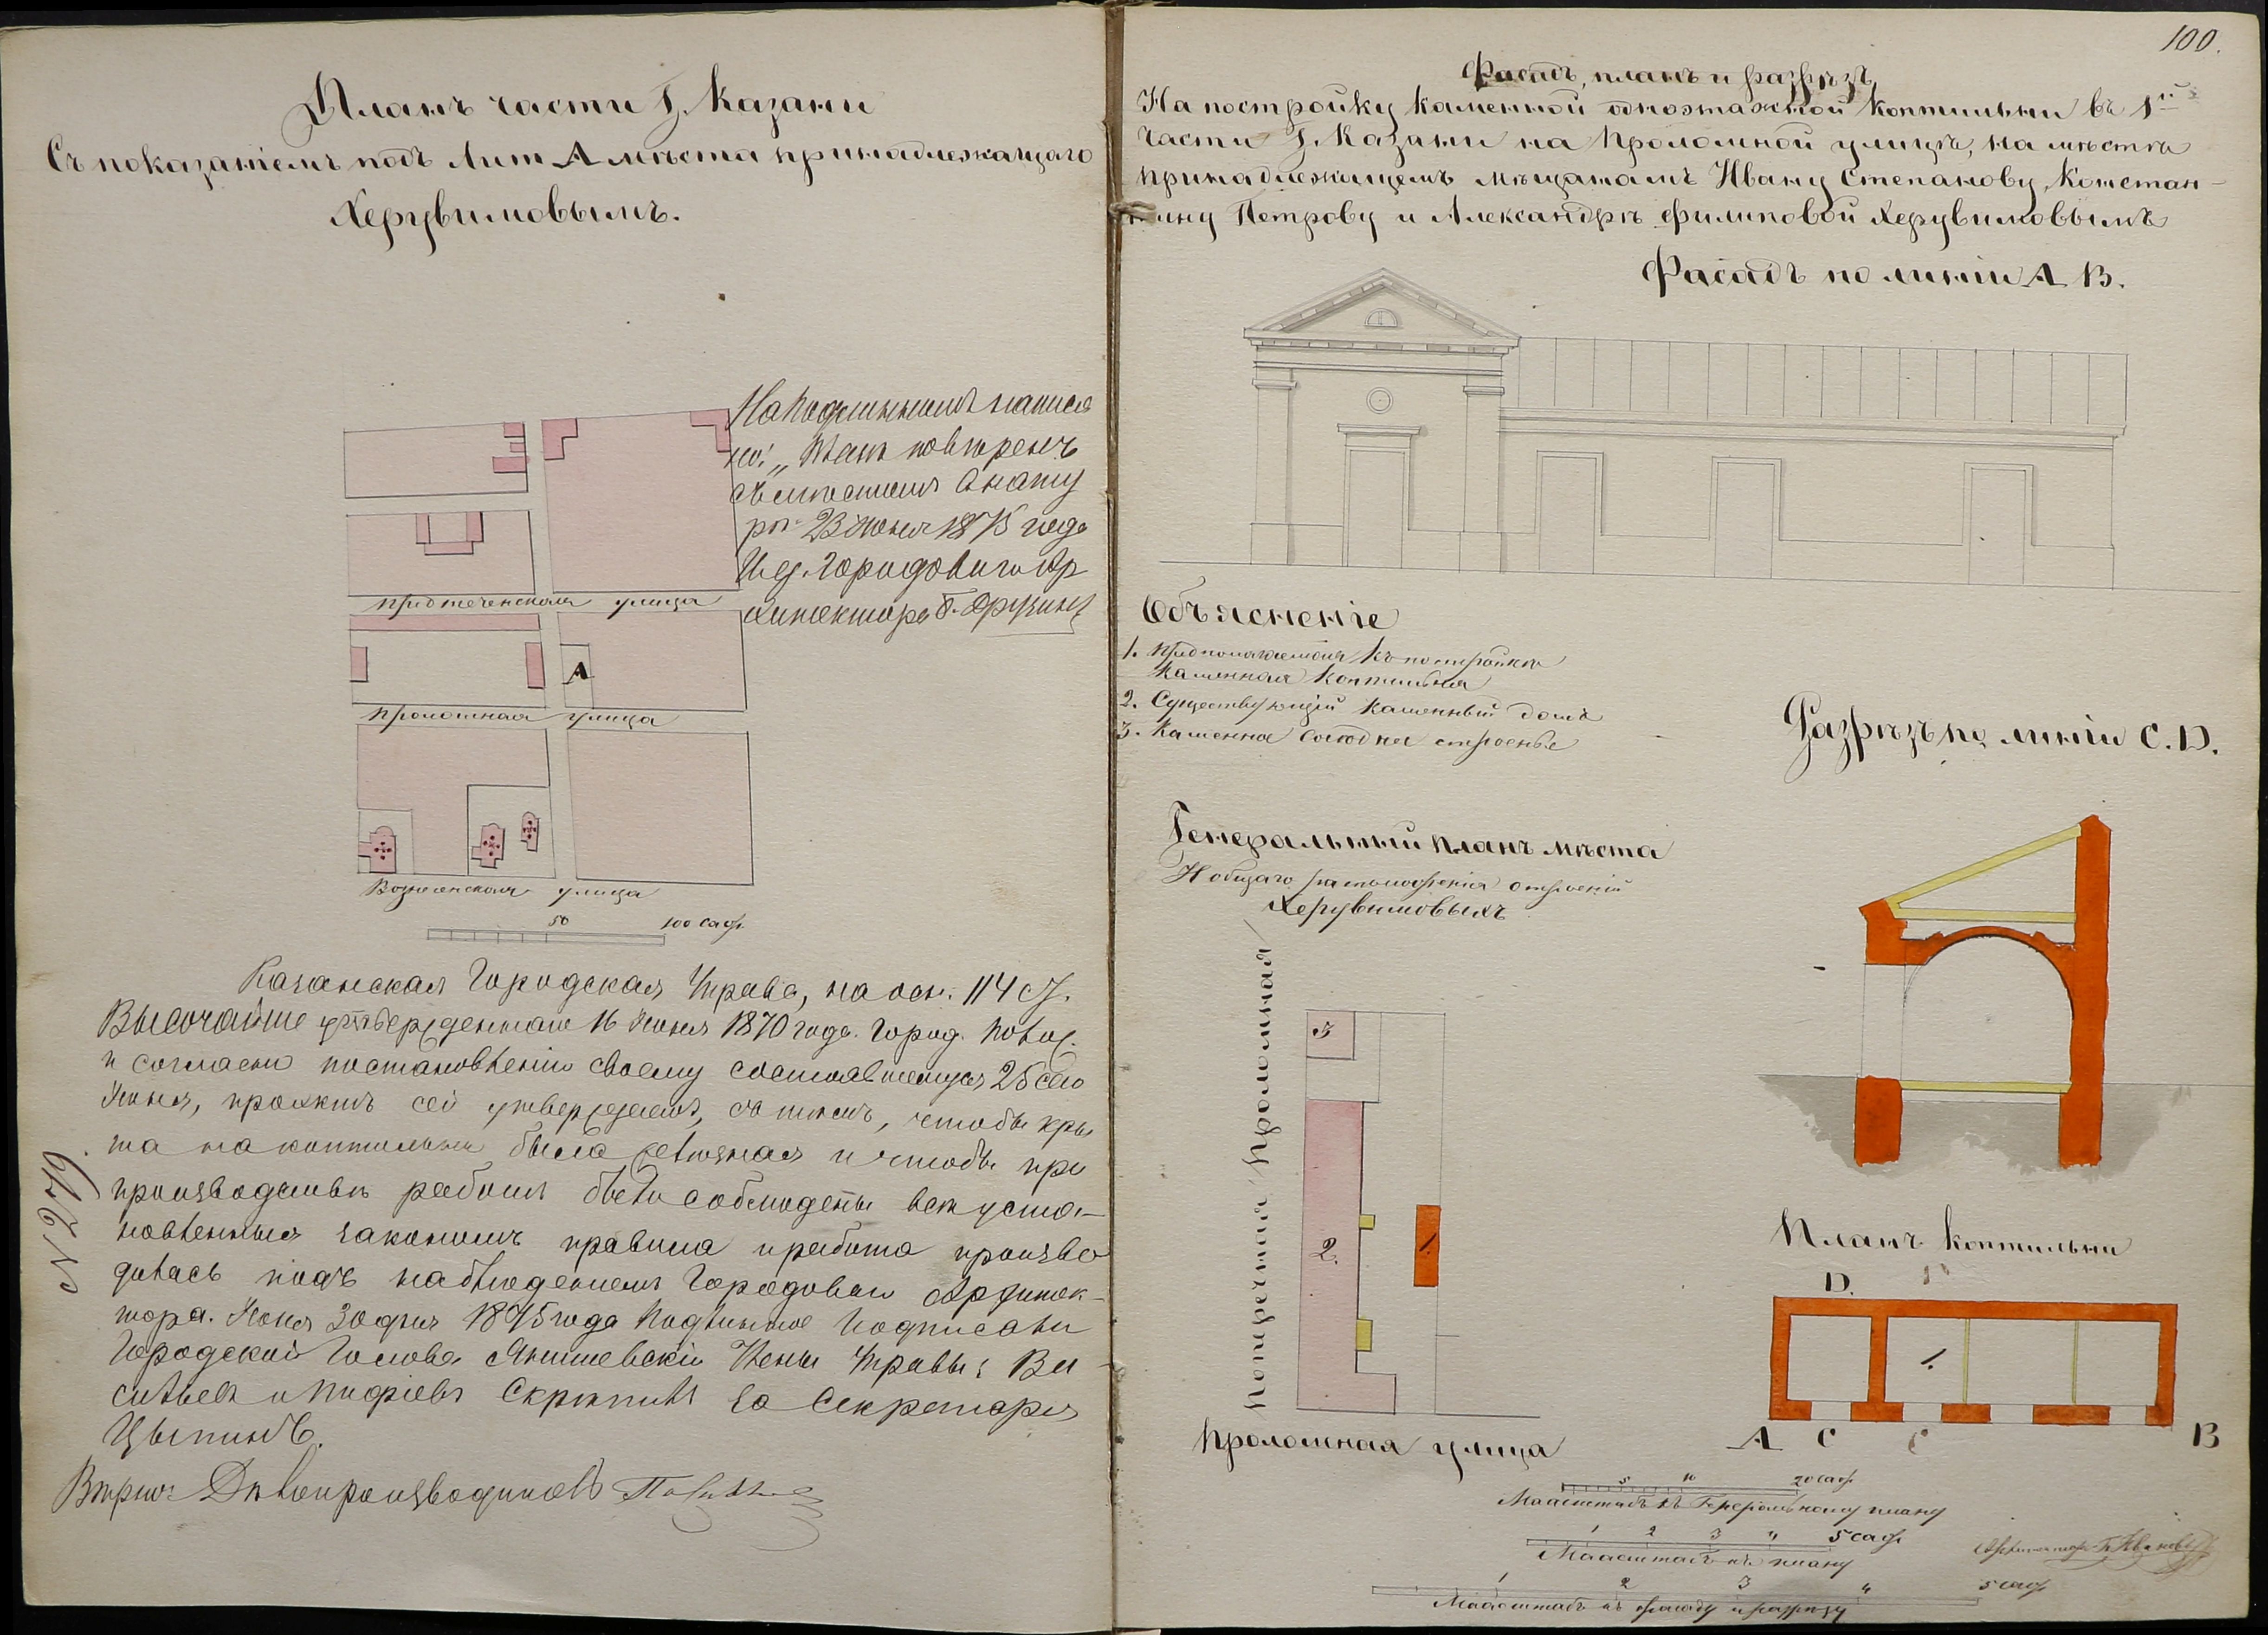 Планъ части Г. Казани
Съ показаніемъ подъ Лит А мѣста принадлежащаго
Херувимовымъ.
На подлинномъ написа
но: „Планъ повѣренъ
съ мѣстомъ въ нату
рѣ 23 Іюня 1875 года
И.д. Городоваго Ар
хитектора
Предтеченская улица
А
Проломная улица
Вознесенская улица
50 100 саж.
Казанская Городская Управа, на осн. 114 ст.
Высочайше утвержденнаго 16 Іюня 1870 года Город. Полож.
и согласно постановленію своему состоявшемуся 25 сего
Іюня, проэктъ сей утверждаетъ, съ тѣмъ, чтобы кры
ша на коптильни была желѣзная и чтобы при
производствѣ работъ были соблюдены всѣ уста-
новленныя закономъ правила и работа произво
дилась подъ наблюденіемъ Городоваго Архитек-
тора. Іюня 30 дня 1875 года Подлинное подписали
Городской Голова Янишевскій Члены Управы: Ва
сильевъ и Скрѣпилъ за Секретаря
Цыпинъ.
Вѣрно: Дѣлопроизводитель
N 279
100.
Фасадъ, планъ и разрѣзъ,
На постройку каменной одноэтажной коптильни въ 1й
части Г. Казани на Проломной улицѣ, на мѣстѣ
принадлежащемъ мѣщанамъ Ивану Степанову, Констан-
тину Петрову и Александрѣ Филиповой Херувимовымъ
Фасадъ по линіи А В.
Объясненіе
1. Предполагаемая къ постройкѣ
каменная коптильня
2. Существующій каменный домъ
3. Каменна строенье
Разрѣзъ по линіи C. D.
Генеральный планъ мѣста
И общаго расположенія строеній
Херувимовыхъ
Поперечная Проломная
3
2.
1.
Проломная улица
Планъ коптильни
D.
1.
А C В
5 10 20 саж
Маасштабъ къ Генеральному плану
1 2 3 4 5 саж
Маасштабъ къ плану
1 2 3 4 5 саж
Маасштабъ къ фасаду и разрѣзу